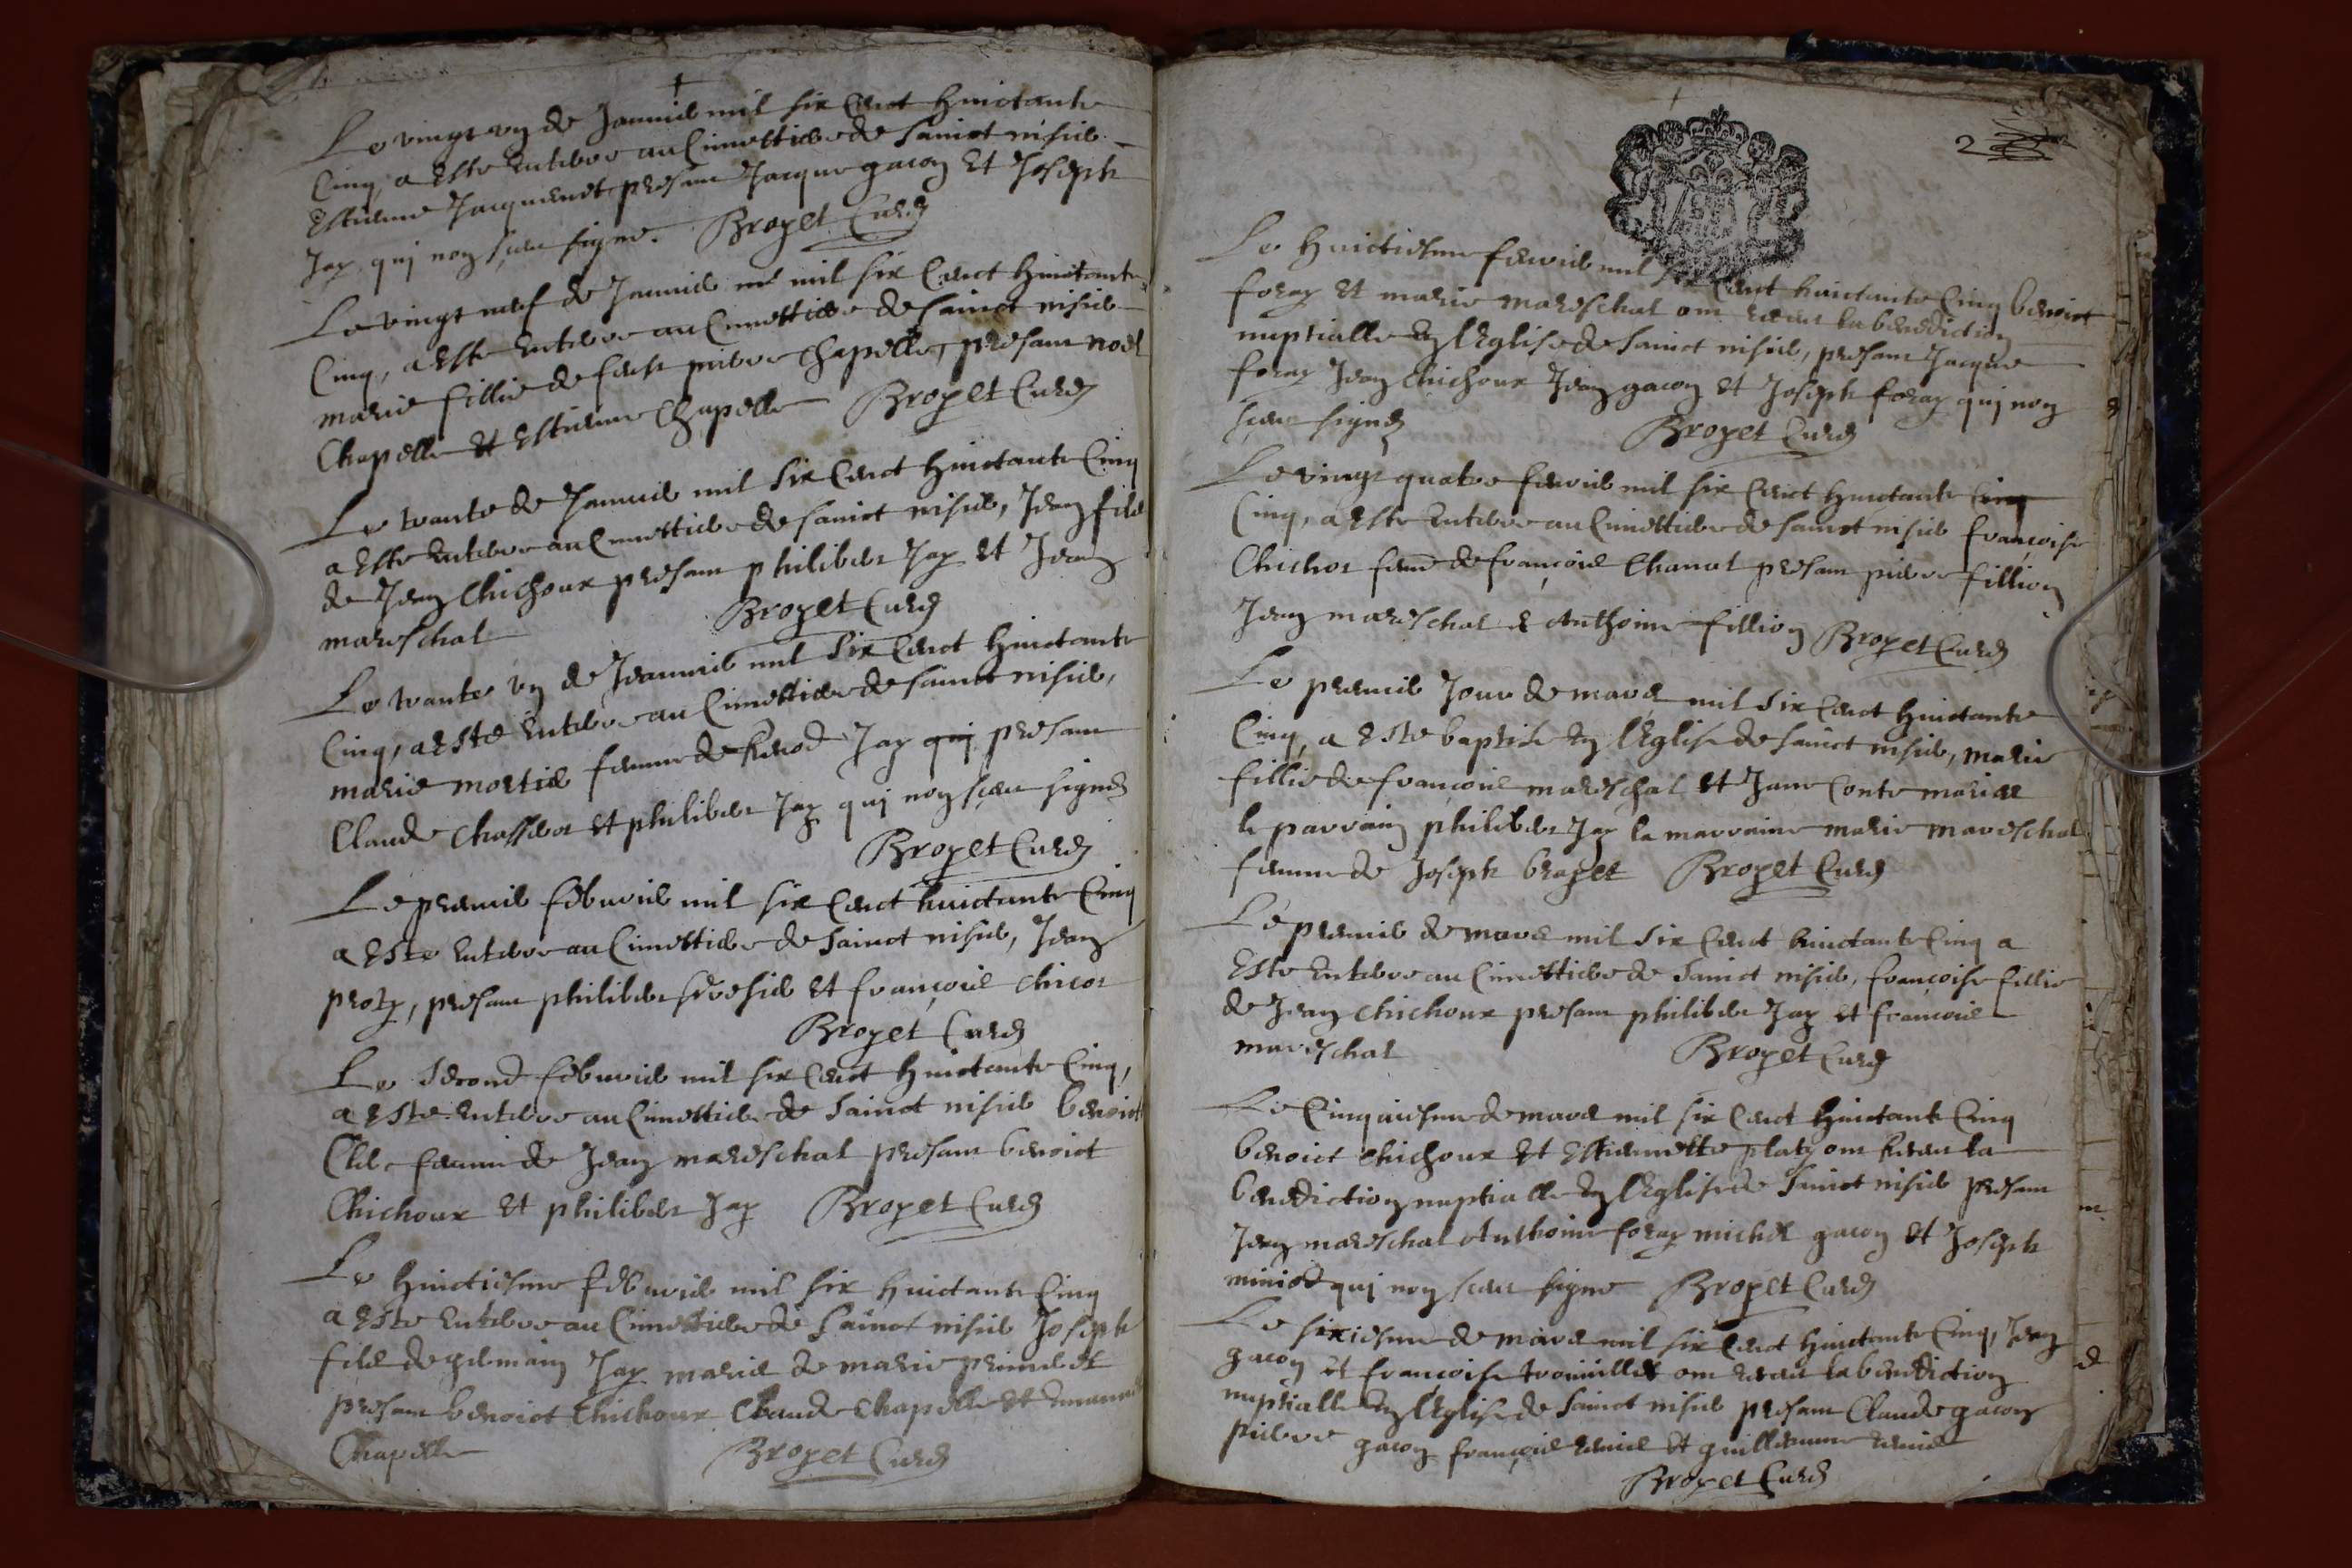 Le vingt un de Januier mil six Cent huictante
Cinq, a Este Enterre au Cimettiere de sainct nisier
Estienne Jacquemet presam Jacque gacon Et Joseph
Jay qui non sceu signe. Broyet Curé
Le vingt neuf de Januier mil six Cent huictante
Cinq, a Este Enterre au Cimettiere de sainct nisier
marie fillie de feu pierre Chapelle, presam noel
Chapelle Et Estienne Chapelle Broyet Curé
Le trante de Januier mil six Cent huictante Cinq
a Este Enterre au Cimettiere de sainct nisier, Jean fils
de Jean Chichoux presam philiber Jay Et Jean
mareschal Broyet Curé
Le trante un de Jeanuier mil six Cent huictante
Cinq, a Esté Enterre au Cimettiere de sainct nisier,
marie mortier femme de Jay qui presam
Claude Chasser Et philiber Jay qui non sceu signé
Broyet Curé
Le premier feburier mil six Cent huictante Cinq
a Este Enterre au Cimettiere de sainct nisier, Jean
, presam philiber Et françois Chicot
Broyet Curé
Le second feburier mil six Cent huictante Cinq,
a Este Enterre au Cimettiere de sainct nisier benoict
Clerc femme de Jean mareschal presam benoict
Chichoux Et philiber Jay Broyet Curé
Le huictiesme feburier mil six huictante Cinq
a Este Enterre au Cimettiere de sainct nisier Joseph
fils de germain Jay marié de marie
presam benoict Chichoux Claude Chapelle Et
Chapelle Broyet Curé
2
Le huictiesme feurier mil six Cent huictante Cinq benoict
foray Et marie mareschal ont receu la benediction
nuptialle En l'Eglise de sainct nisier, presam Jacque
foray Jean Chichoux Jean gacon Et Joseph foray qui non
sceu signé Broyet Curé
Le vingt quatre feurier mil six Cent huictante Cinq
Cinq, a Este Enterre au Cimettiere de sainct nisier françoise
Chichot feme de françois Chanut presam pierre fillion
Jean mareschal & Anthoine fillion Broyet Curé
Le premier Jour de mars mil six Cent huictante
Cinq, a Este baptise En l'Eglise de sainct nisier, marie
fillie de françois mareschal Et Jane Conte mariez
le parrain philiber Jay la marraine marie mareschal
femme de Joseph broyet Broyet Curé
Le premier de mars mil six Cent huictante Cinq a
Este Enterre au Cimettiere de sainct nisier, françoise fillie
de Jean Chichoux presam philiber Jay et francois
mareschal Broyet Curé
Le Cinquiesme de mars mil six Cent huictante Cinq
benoict Chichoux Et Estiennette platy ont receu la
benediction nuptialle En l'Eglise de sainct nisier presam
Jean mareschal Anthoine foray michel gacon Et Joseph
qui non sceu signe Broyet Curé
Le sixiesme de mars mil six Cent huictante Cinq, Jean
gacon Et françoise trouilliet ont receu la benediction
nuptialle En l'Eglise de sainct nisier presam Claude gacon
pierre gacon françois Et guillaume
Broyet Curé